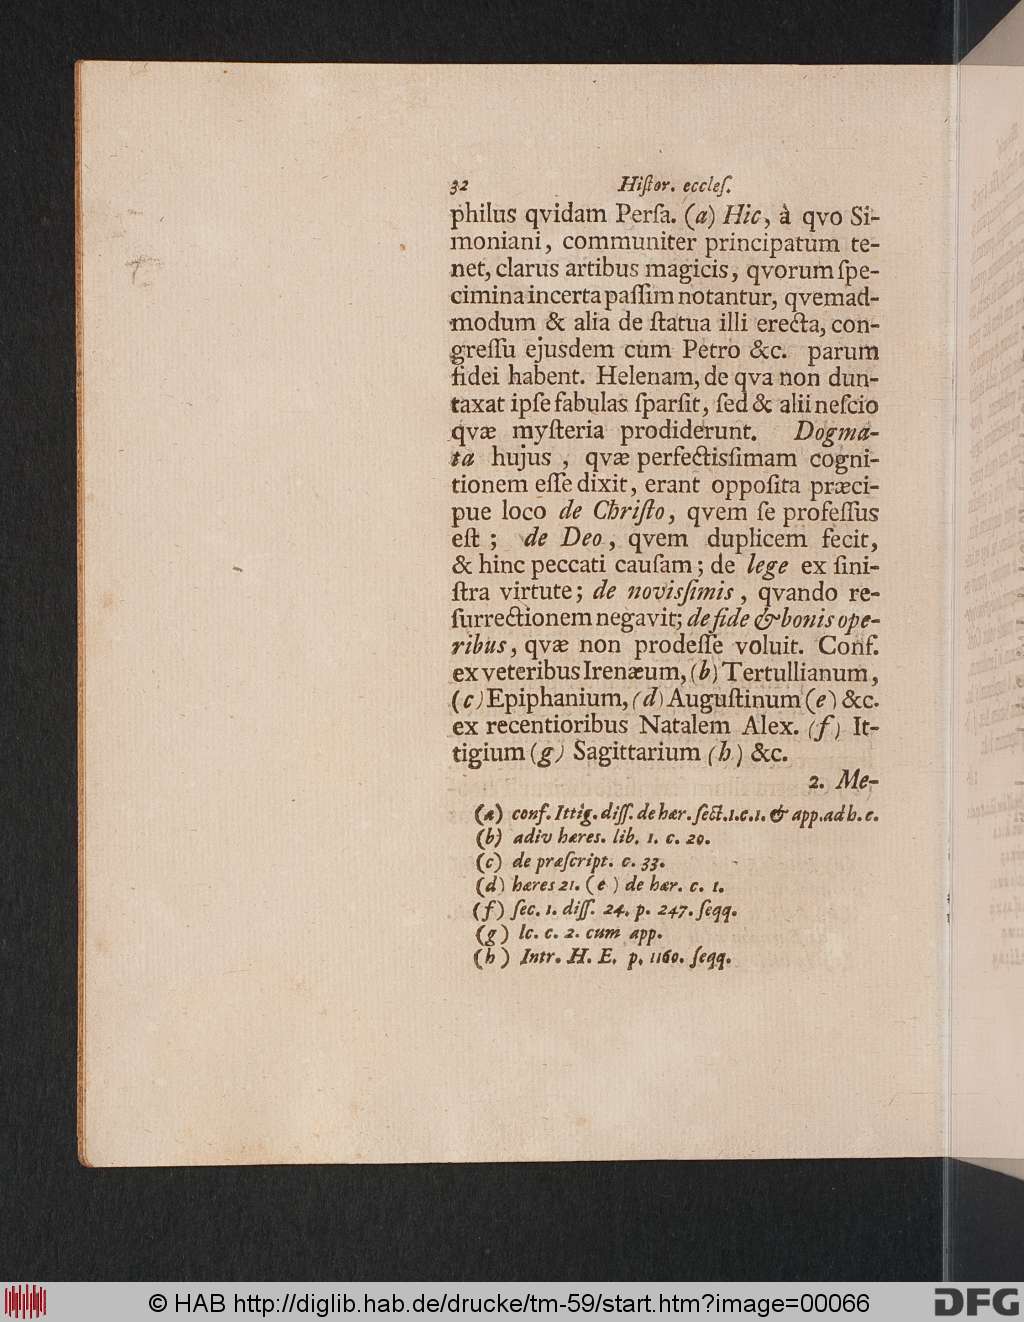 32 Hiſtor. eccleſ.
philus qvidam Perſa. (a) Hic, à qvo Si-
moniani, communiter principatum te-
net, clarus artibus magicis, qvorum ſpe-
cimina incerta paſſim notantur, qvemad-
modum & alia de ſtatua illi erecta, con-
greſſu ejusdem cum Petro &c. parum
fidei habent. Helenam, de qva non dun-
taxat ipſe fabulas ſparſit, ſed & alii neſcio
qvæ myſteria prodiderunt. Dogma-
ta hujus , qvæ perfectisſimam cogni-
tionem eſſe dixit, erant oppoſita præci-
pue loco de Chriſto, qvem ſe profeſſus
eſt ; de Deo, qvem duplicem fecit,
& hinc peccati cauſam; de lege ex ſini-
ſtra virtute; de novisſimis , qvando re-
ſurrectionem negavit; de fide & bonis ope-
ribus, qvæ non prodeſſe voluit. Conf.
ex veteribus Irenæum, (b) Tertullianum,
(c) Epiphanium, (d) Auguſtinum (e) &c.
ex recentioribus Natalem Alex. (f) It-
tigium (g) Sagittarium (h) &c.
2. Me-
(a) conf. Ittig. diſſ. de hær. ſect. 1. c. 1. & app. ad h. c.
(b) adiv hæres. lib. 1. c. 20.
(c) de præſcript. c. 33.
(d) hæres 21. (e) de hær. c. 1.
(f) ſec. 1. diſſ. 24. p. 247. ſeqq.
(g) lc. c. 2. cum app.
(h) Intr. H. E. p. 1160. ſeqq.
© HAB http://diglib.hab.de/drucke/tm-59/start.htm?image=00066
DFG